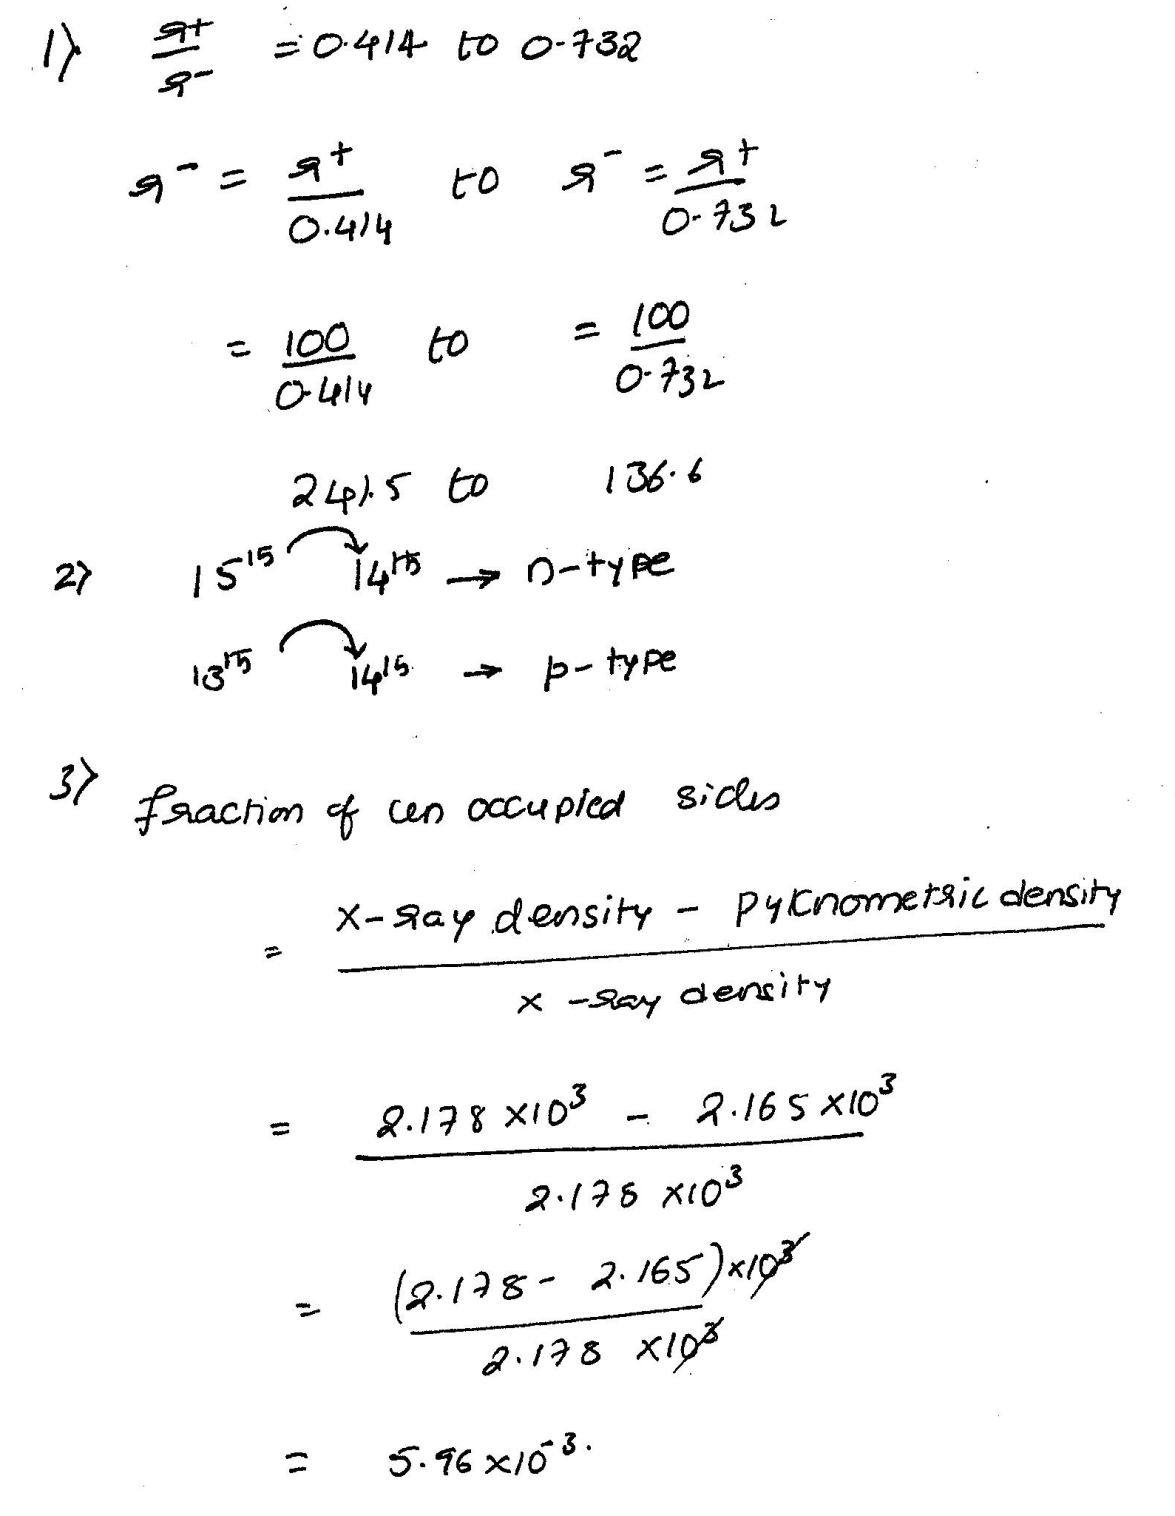 1) r+/r- = 0.414 to 0.732
r- = r+/0.414 to r- = r+/0.732
= 100/0.414 to = 100/0.732
241.5 to 136.6
2) 15^15 14^15 → n-type
13^15 14^15 → p-type
3) fraction of un occupied sides
= x-ray density - pyknometric density
x-ray density
= 2.178 ×10^3 - 2.165 ×10^3
2.178 ×10^3
= (2.178 - 2.165) ×10^3
2.178 ×10^3
= 5.96 ×10^-3.